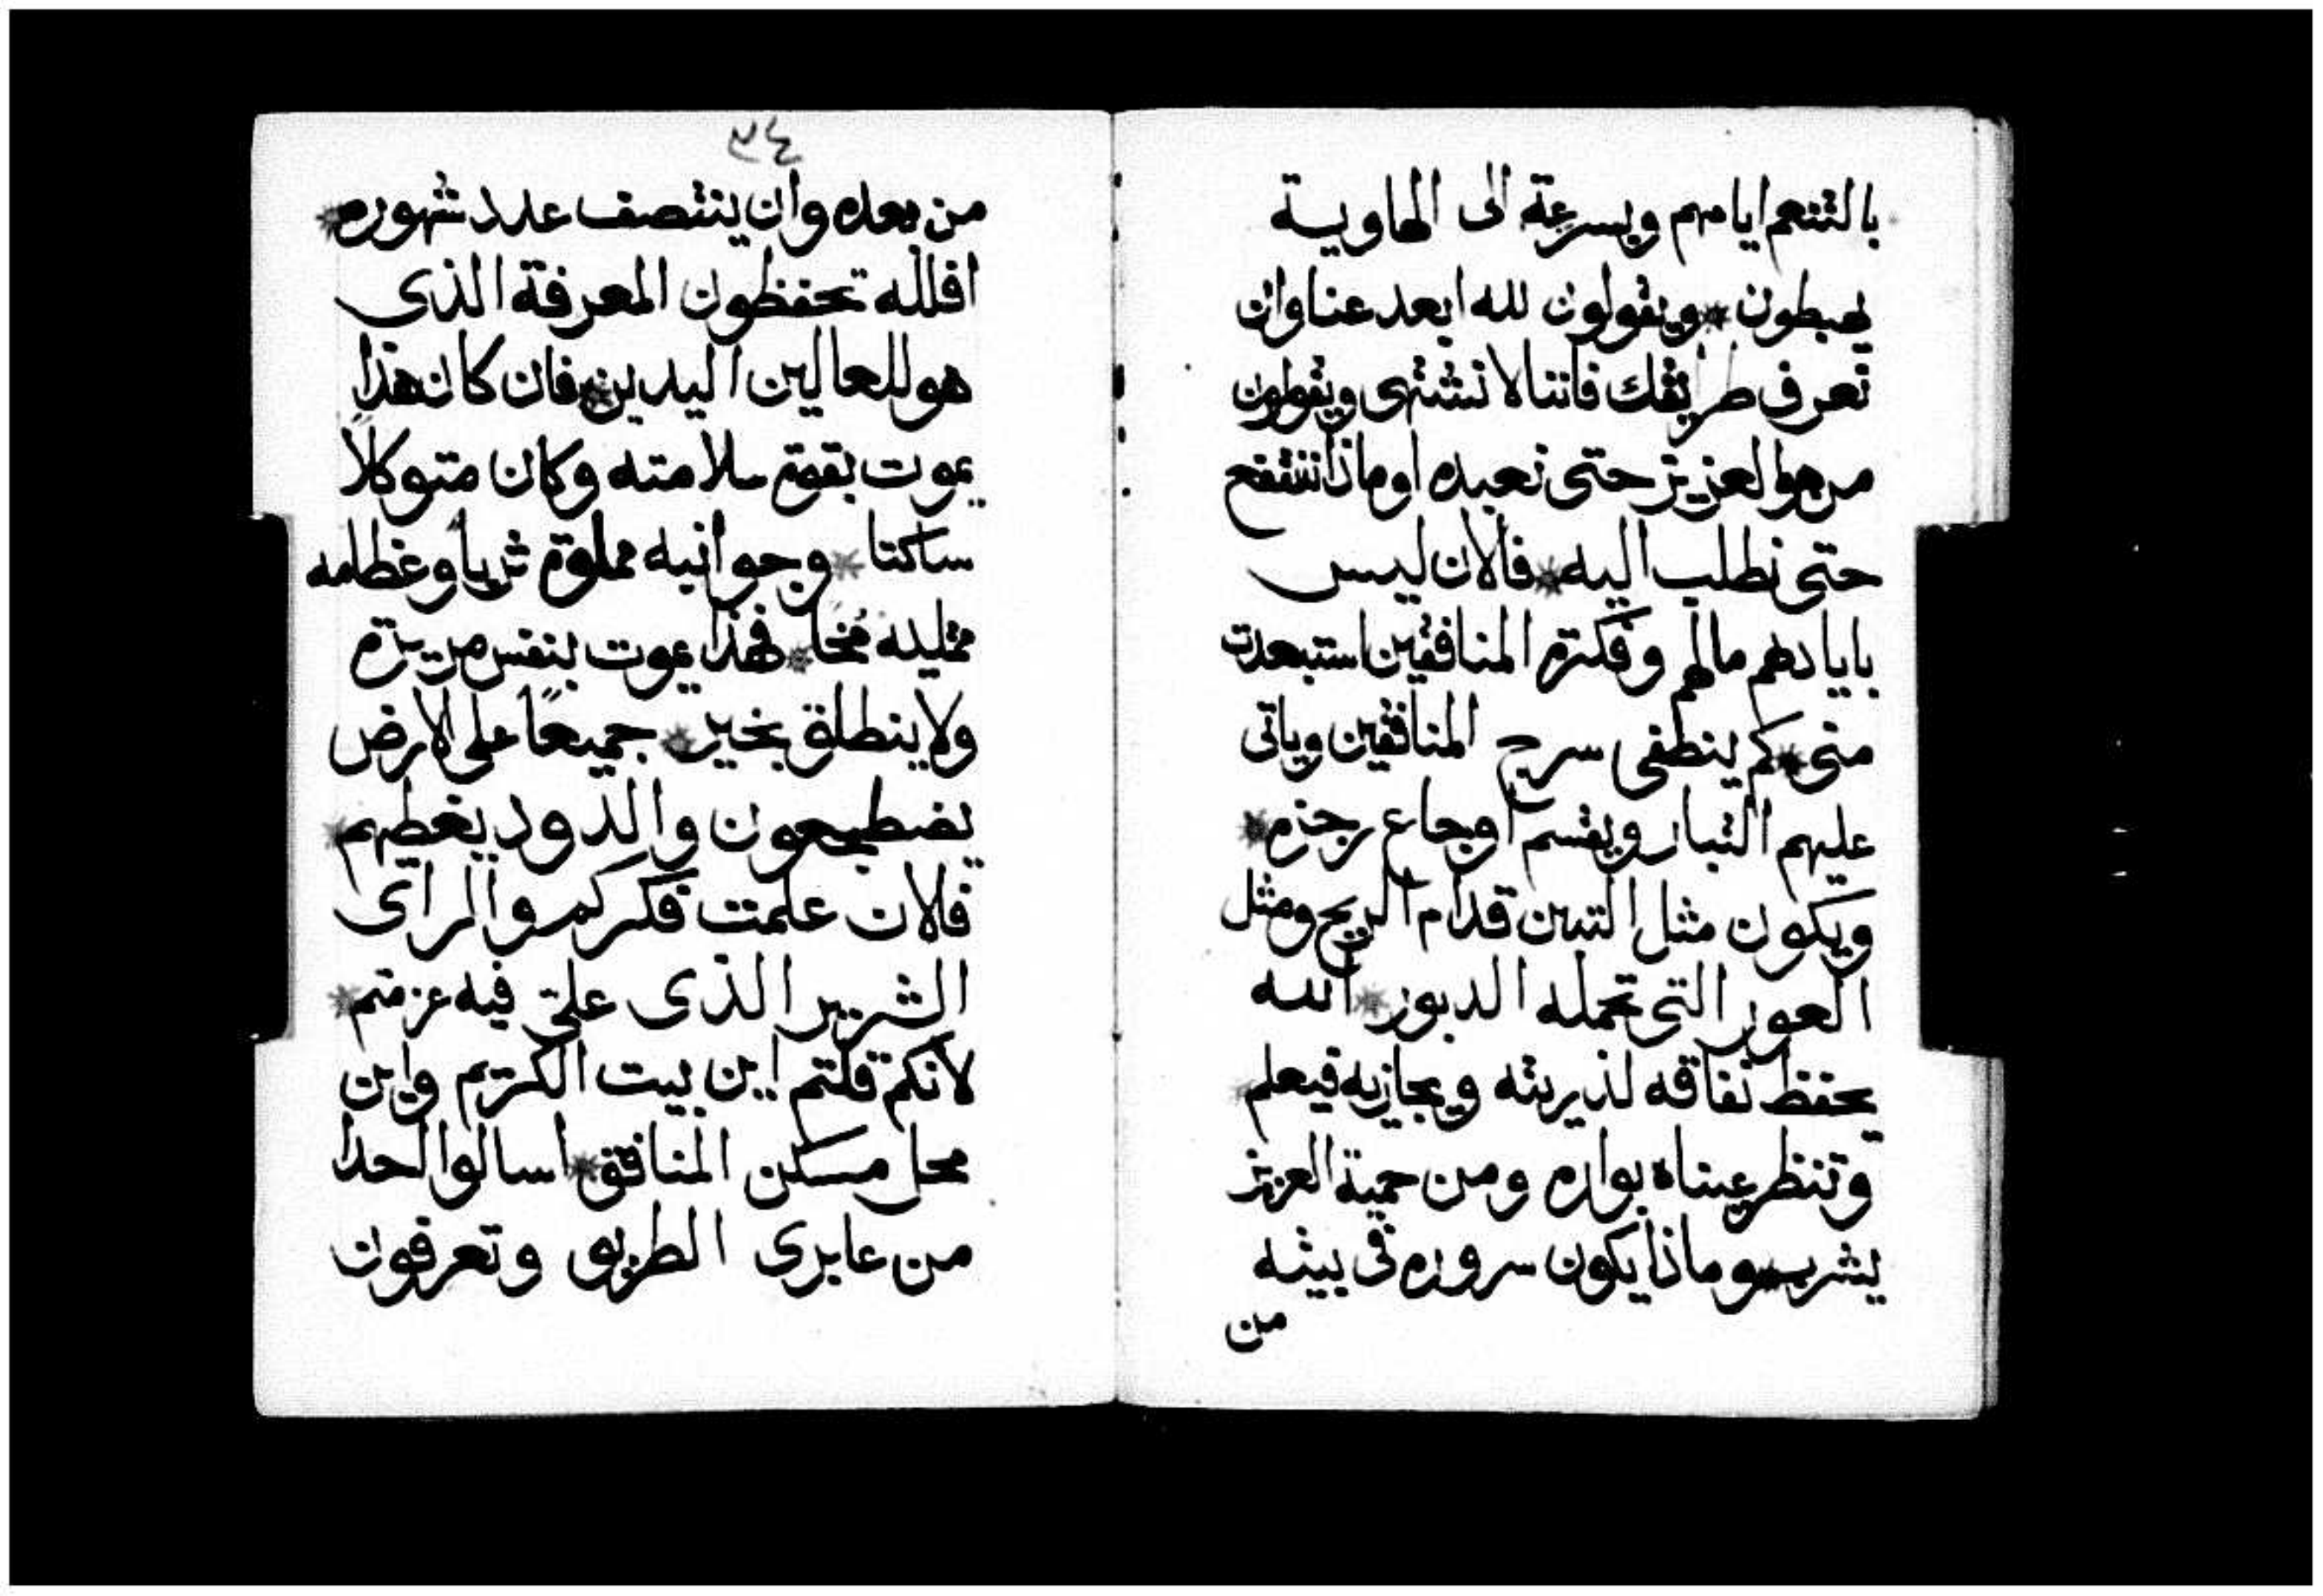 بالتنعم ايامهم وبسرعة الى الهاوية
يهبطون * ويقولون لله ابعد عنا وان
تعرف طريقك فاننا لا نشتهى ويقولون
من هو العزيز حتى نعبده او ماذا ننتفع
حتى نطلب اليه * فالان ليس
باياديهم مالهم وفكرة المنافقين استبعدت
منى * كم ينطفى سرج المنافقين وياتى
عليهم التبار ويقسم اوجاع رجزه *
ويكون مثل التبن قدام الريح ومثل
العور التى تحمله الدبور * الله
يحفظ نفاقه لذيريته ويجازيه فيعلم *
وتنظر عيناه بواره ومن حمية العزيز
يشرب وماذا يكون سروره فى بيته
من
٣٤
من بعده وان ينتصف عدد شهوره *
افلله تحفظون المعرفة الذى
هو للعالين اليدين * فان كان هذا
يموت بقوة سلامته وكان متوكلاً
ساكتا * وجوانبه مملوة ثرباً وعظامه
ممتليه مُخا * فهذا يموت بنفس مريرة
ولا ينطلق بخير * جميعاً على الارض
يضطجعون والدود يغطيهم *
فالان علمت فكركم والراى
الشرير الذى علىّ فيه عزمتم *
لانكم قلتم اين بيت الكريم واين
محل مسكن المنافق * اسالوا احدا
من عابرى الطريق وتعرفون